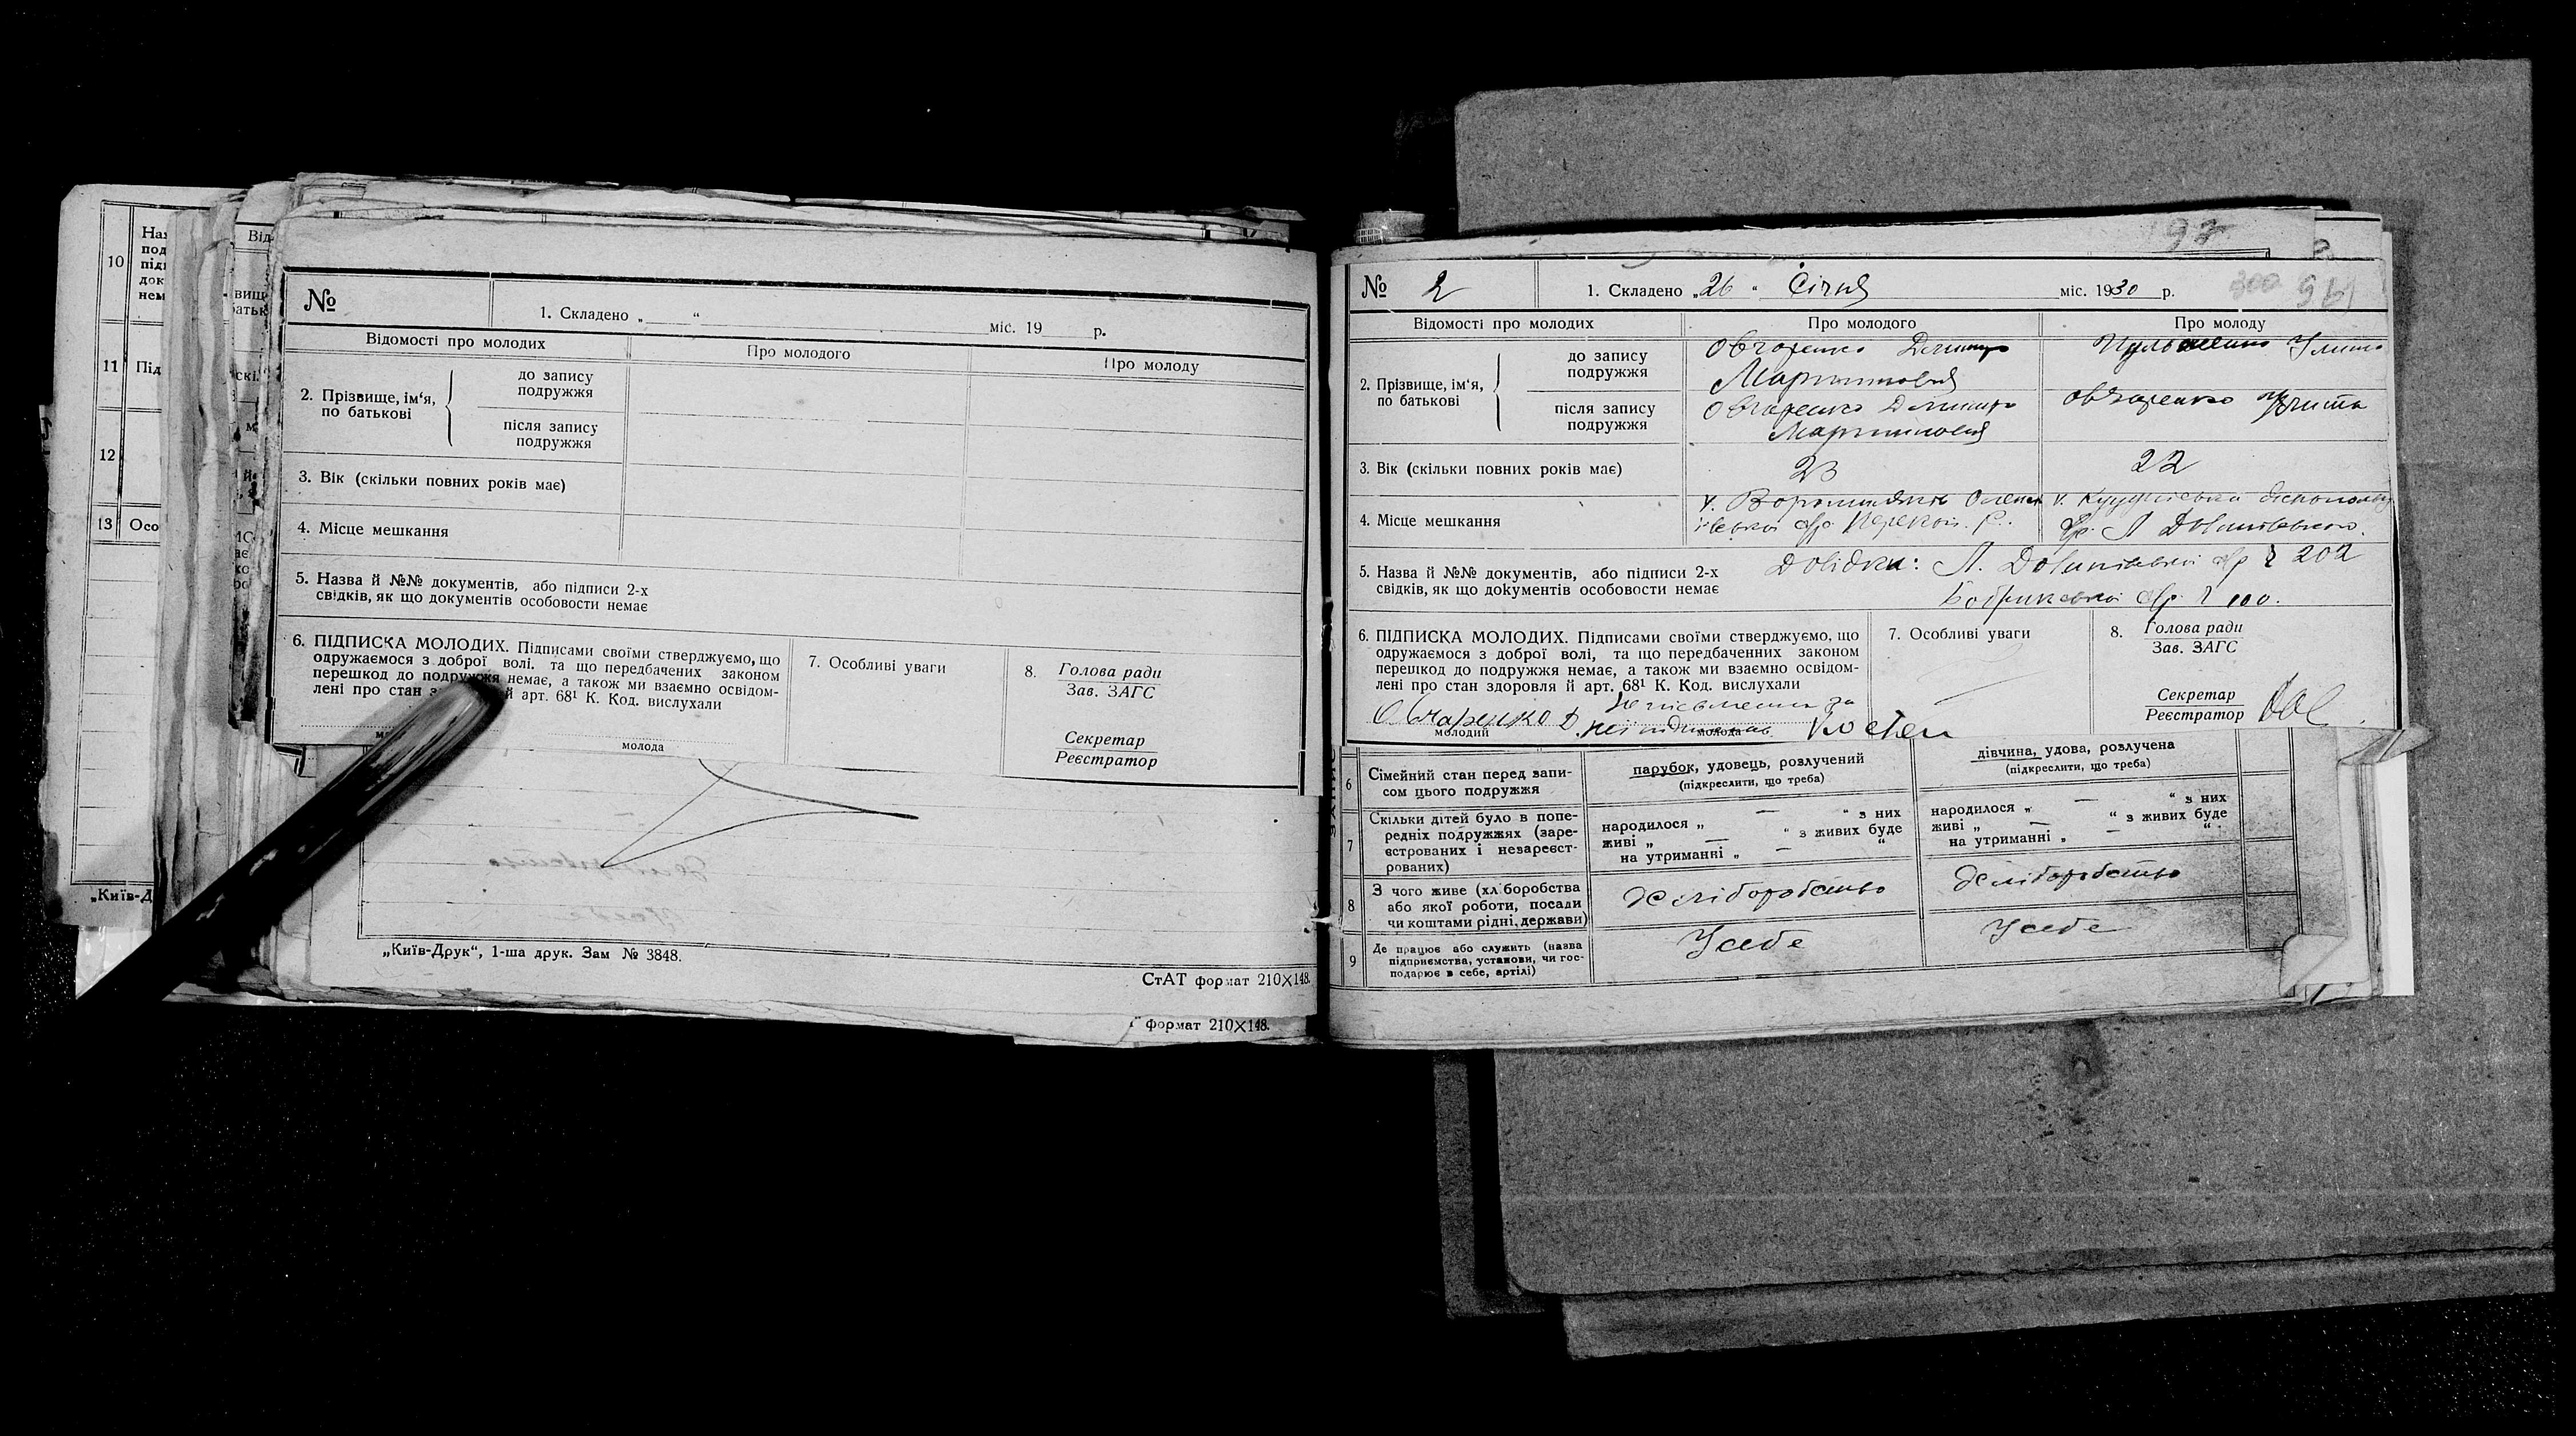 10
На
під
док
нем
11 Під
12
13 Осо
„Київ-Д
Від
№
1. Складено „ “ міс. 19 р.
Відомості про молодих
Про молодого
Про молоду
2. Прізвище, ім‘я, по батькові
до запису подружжя
після запису подружжя
3. Вік (скільки повних років має)
4. Місце мешкання
5. Назва й №№ документів, або підписи 2-х
свідків, як що документів особовости немає
6. ПІДПИСКА МОЛОДИХ. Підписами своїми стверджуємо, що
одружаємося з доброї волі. та що передбачених законом
перешкод до подружжя немає, а також ми взаємно освідом-
лені про стан з й арт. 68¹ К. Код. вислухали
молода
7. Особливі уваги
8. Голова ради
Зав. ЗАГС
Секретар
Реєстратор
„Київ-Друк“, 1-ша друк. Зам № 3848.
СтАТ формат 210×148.
формат 210×148.
93
№ 2
1. Складено „26“ Січня міс. 1930 р.
300
Відомості про молодих
Про молодого
Про молоду
2. Прізвище, ім‘я, по батькові
до запису подружжя
Овчаренко Дмитро
Мартинович
після запису подружжя
Овчаренко Дмитро
Мартинович
Овчаренко
3. Вік (скільки повних років має)
23
22
4. Місце мешкання
5. Назва й №№ документів, або підписи 2-х
свідків, як що документів особовости немає
Довідки: Л. Долинівської с/р 202
с/р 100.
6. ПІДПИСКА МОЛОДИХ. Підписами своїми стверджуємо, що
одружаємося з доброї волі, та що передбаченних законом
перешкод до подружжя немає, а також ми взаємно освідом-
лені про стан здоровля й арт. 68¹ К. Код. вислухали
Овчаренко Д.
неписьменна за
неї підписався
молодий
молода
7. Особливі уваги
8. Голова ради
Зав. ЗАГС
Секретар
Реєстратор
6 Сімейний стан перед запи-
сом цього подружжя
парубок, удовець, розлучений
(підкреслити, що треба)
дівчина, удова, розлучена
(підкреслити, що треба)
7 Скільки дітей було в попе-
редніх подружжях (заре-
єстрованих і незареєст-
рованих)
народилося „ — “ з них
живі „ — “ з живих буде
на утриманні „ — “
народилося „ — “ з них
живі „ — “ з живих буде
на утриманні „ — “
8 З чого живе (хліборобства
або якої роботи, посади
чи коштами рідні, держави)
хліборобство
хліборобство
9 Де працює або служить (назва
підприємства, установи, чи гос-
подарює в себе, артілі)
У себе
У себе